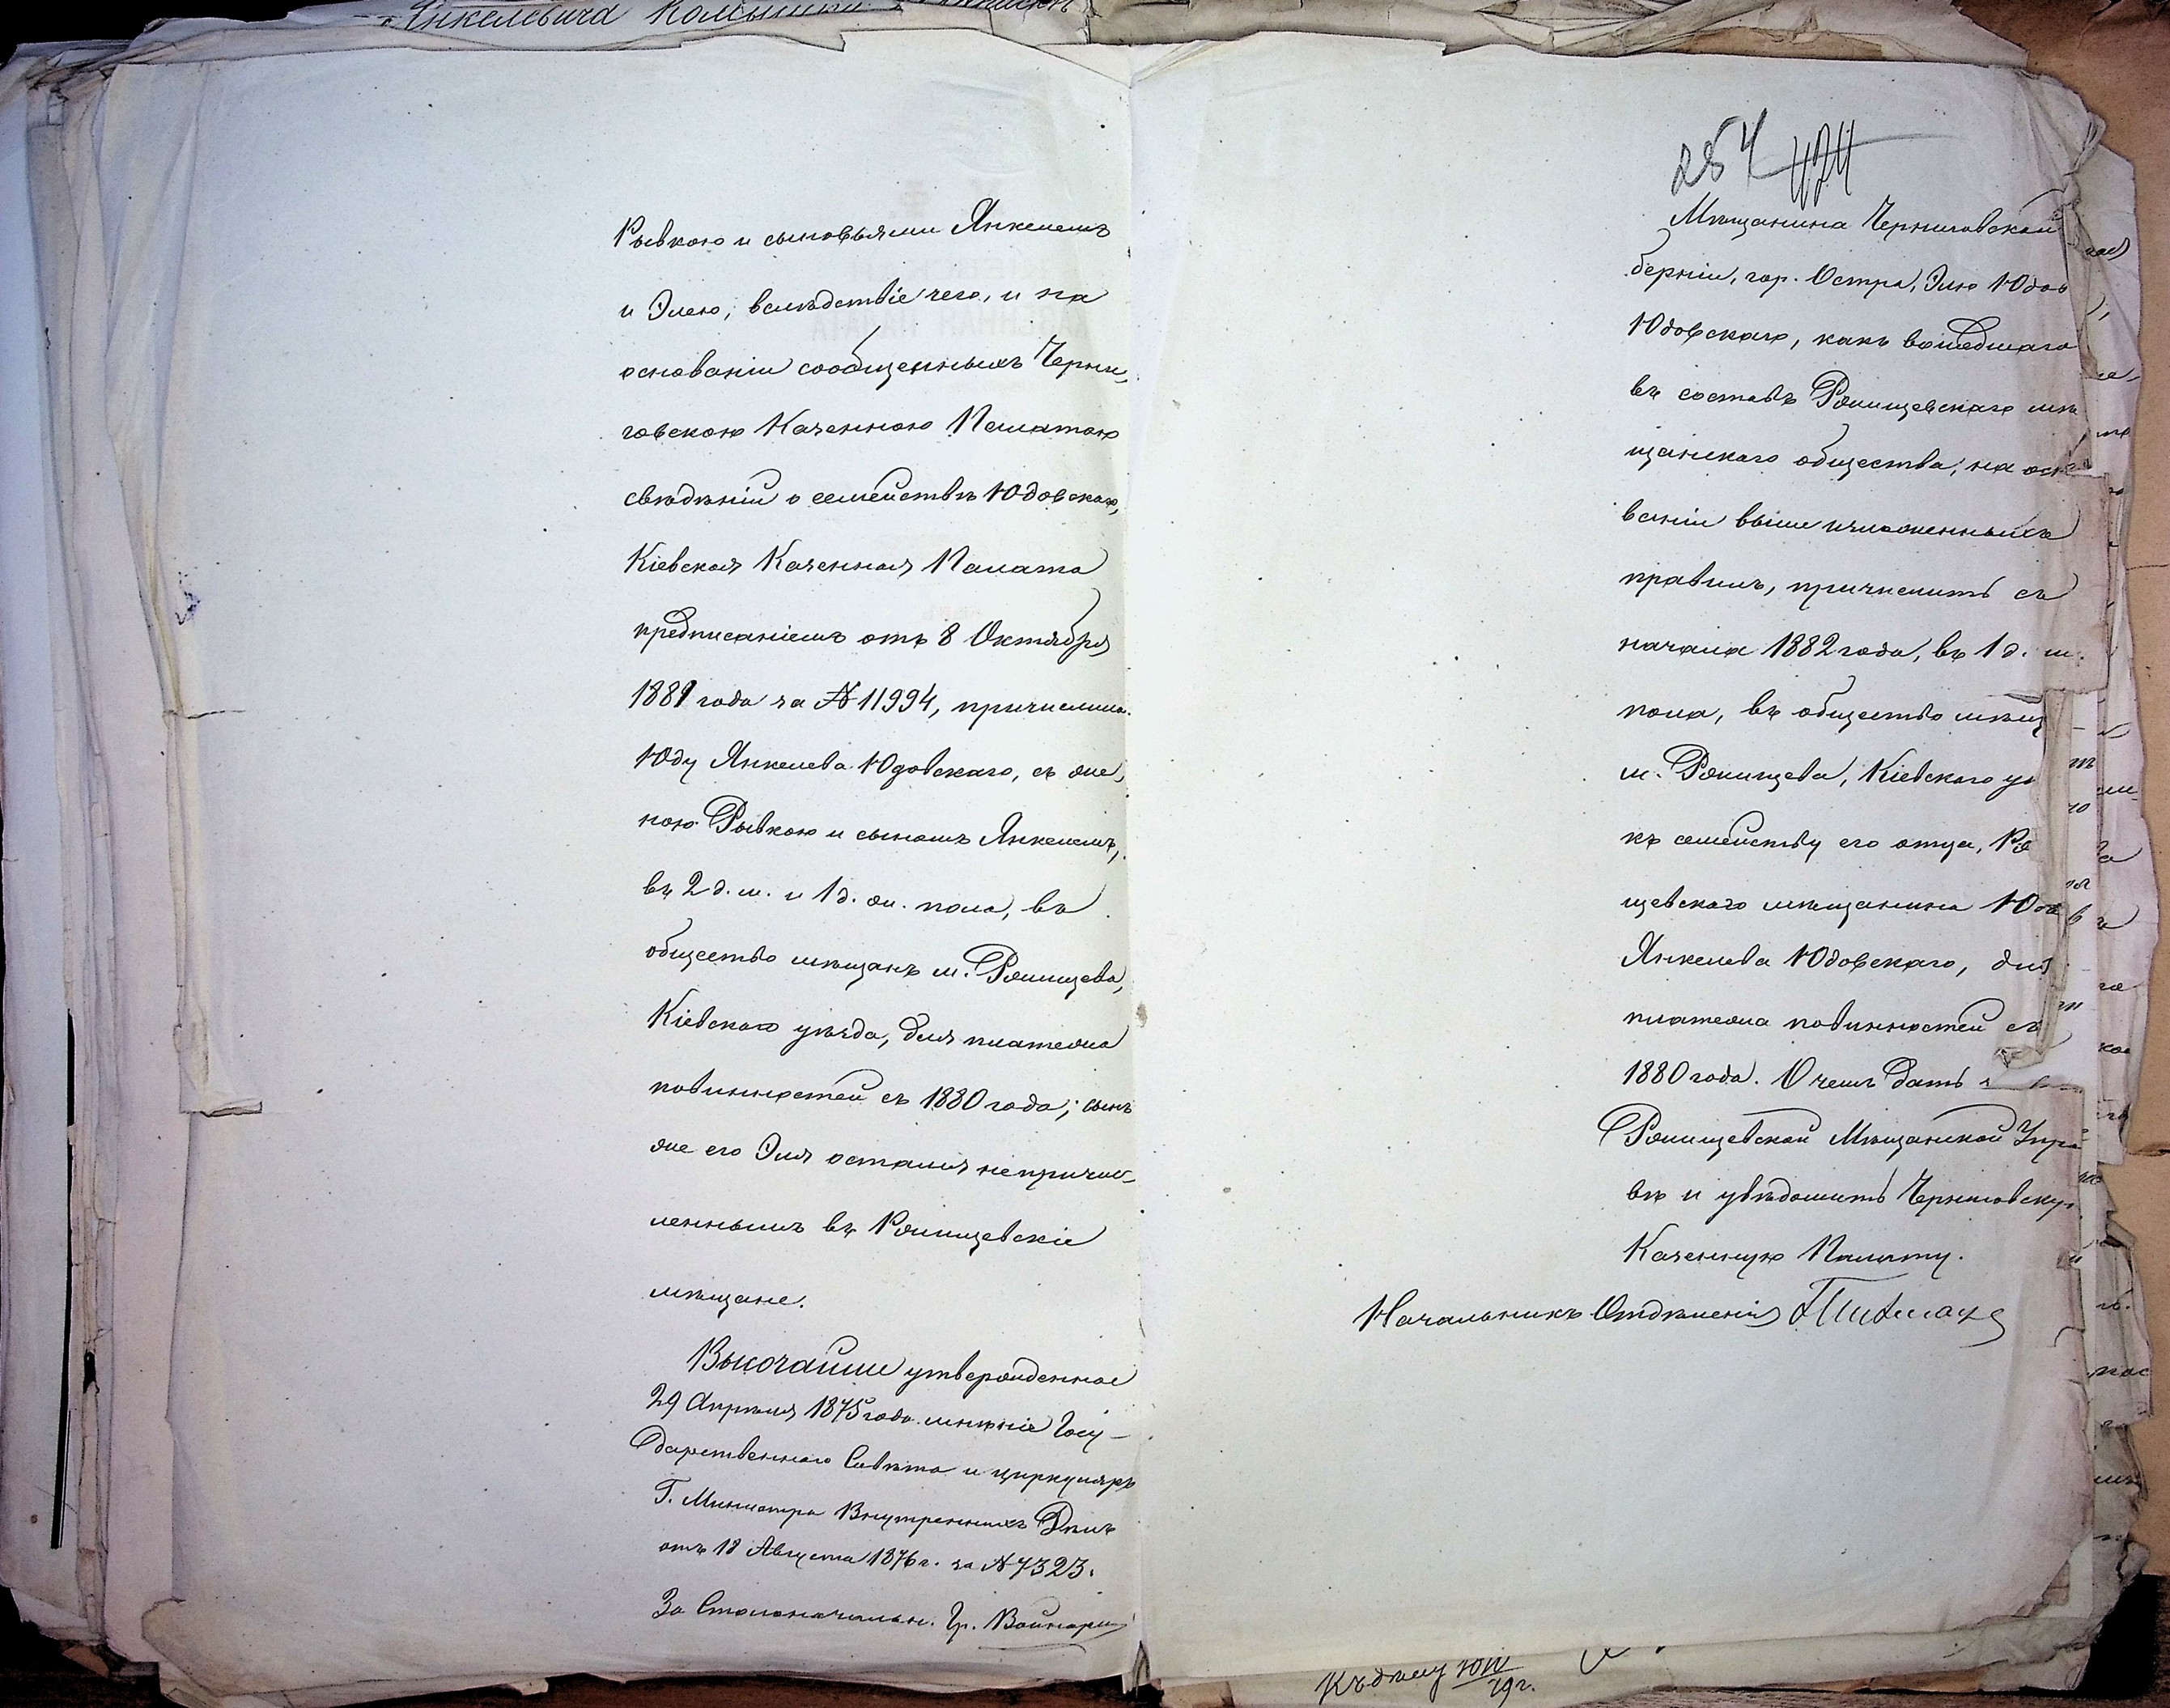 Рывкою и сыновьями Янкелемъ
и Элею; вслѣдствіе чего, и на
основаніи сообщенныхъ Черни-
говскою Казенною Палатою
свѣдѣній о семействѣ Юдовскаго,
Кіевская Казенная Палата
предписаніемъ отъ 8 Октября
1881 года за № 11994, причислила
Юду Янкелева Юдовскаго, съ же-
ною Рывкою и сыномъ Янкелемъ,
въ 2 д. м. и 1 д. ж. пола, въ
общество мѣщанъ м. Ржищева,
Кіевскаго уѣзда, для платежа
повинностей съ 1880 года; сынъ
же его Эля остался непричис-
леннымъ въ Ржищевскіе
мѣщане.
Высочайше утвержденное
29 Апрѣля 1875 года мнѣніе Госу-
дарственнаго Совѣта и циркуляръ
Г. Министра Внутреннихъ Дѣлъ
отъ 18 Августа 1876 г. за № 7323.
За Столоначальн. Гр.
254 424
Мѣщанина Черниговской
берніи, гор. Остра, Элю Юдов
Юдовскаго, какъ вошедшаго
въ составъ Ржищевскаго мѣ
щанскаго общества, на осн
ваніи выше изложенныхъ
правилъ, причислить съ
начала 1882 года, въ 1 д. м.
пола, въ общество мѣщ
м. Ржищева, Кіевскаго уѣ
къ семейству его отца, Рж
щевскаго мѣщанина Юды
Янкелева Юдовскаго, для
платежа повинностей съ
1880 года. О чемъ дать
Ржищевской Мѣщанской Упра
вѣ и увѣдомить Черниговскую
Казенную Палату.
Начальникъ Отдѣленія
Къ дѣлу
79 г.